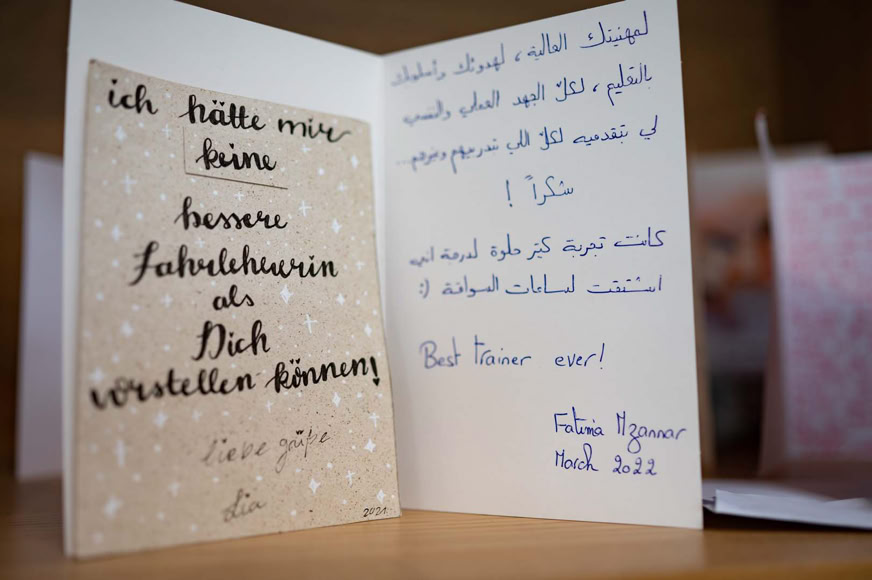 ich hätte mir
keine
bessere
Fahrlehrerin
als
Dich
vorstellen können!
liebe grüße
dia
2021
لمهنيتك العالية، لهدوئك وأسلوبك
بالتعليم، لكلّ الجهد العملي والنفسي
لي بتقدميه لكلّ اللي بتدربيهم وغيرهم...
شكراً !
كانت تجربة كتير حلوة لدرجة انني
اشتقت لساعات السواقة :)
Best trainer ever!
Fatima Mzannar
March 2022